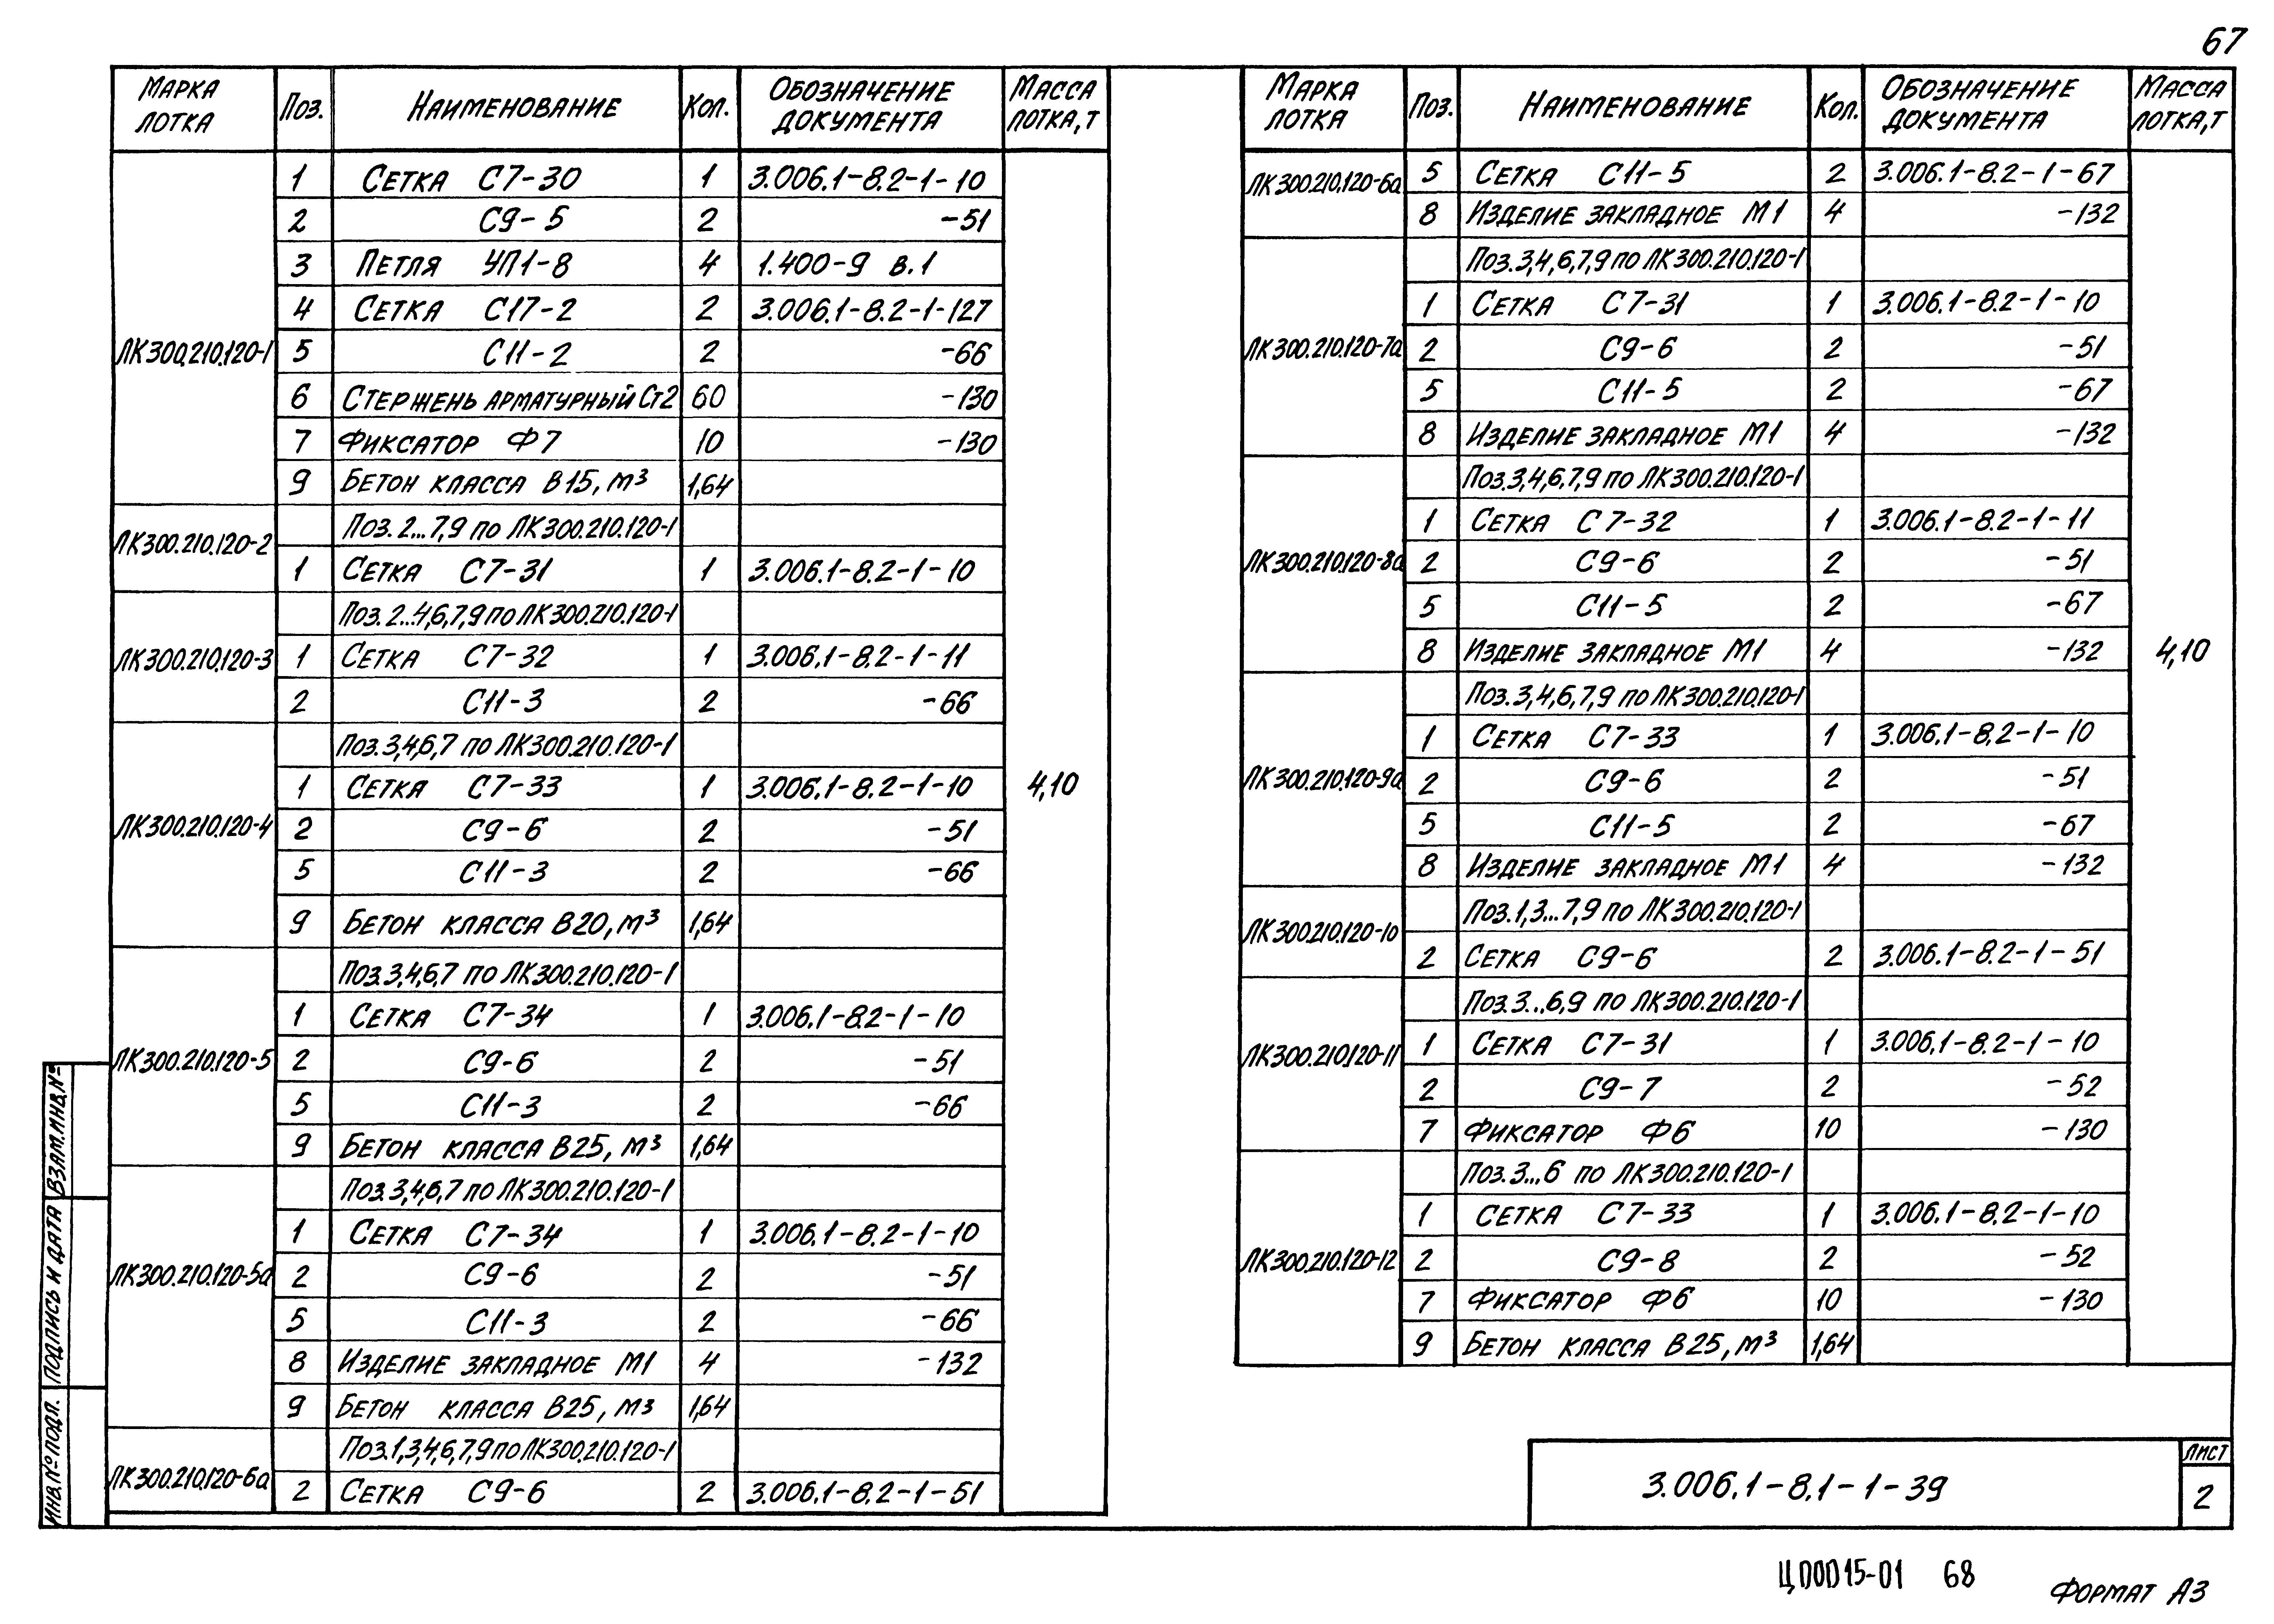 67
МАРКА ЛОТКА ПОЗ. НАИМЕНОВАНИЕ КОЛ. ОБОЗНАЧЕНИЕ ДОКУМЕНТА МАССА ЛОТКА, Т
ЛК300.210.120-1
1 СЕТКА С7-30 1 3.006.1-8.2-1-10
2 С9-5 2 -51
3 ПЕТЛЯ УП1-8 4 1.400-9 в.1
4 СЕТКА С17-2 2 3.006.1-8.2-1-127
5 С11-2 2 -66
6 СТЕРЖЕНЬ АРМАТУРНЫЙ Ст2 60 -130
7 ФИКСАТОР Ф7 10 -130
9 БЕТОН КЛАССА В15, м³ 1,64
ЛК300.210.120-2
Поз. 2...7,9 по ЛК300.210.120-1
1 СЕТКА С7-31 1 3.006.1-8.2-1-10
ЛК300.210.120-3
Поз. 2...4,6,7,9 по ЛК300.210.120-1
1 СЕТКА С7-32 1 3.006.1-8.2-1-11
2 С11-3 2 -66
ЛК300.210.120-4
Поз. 3,4,6,7 по ЛК300.210.120-1
1 СЕТКА С7-33 1 3.006.1-8.2-1-10
4,10
2 С9-6 2 -51
5 С11-3 2 -66
9 БЕТОН КЛАССА В20, м³ 1,64
ЛК300.210.120-5
Поз. 3,4,6,7 по ЛК300.210.120-1
1 СЕТКА С7-34 1 3.006.1-8.2-1-10
2 С9-6 2 -51
5 С11-3 2 -66
9 БЕТОН КЛАССА В25, м³ 1,64
ЛК300.210.120-5а
Поз. 3,4,6,7 по ЛК300.210.120-1
1 СЕТКА С7-34 1 3.006.1-8.2-1-10
2 С9-6 2 -51
5 С11-3 2 -66
8 ИЗДЕЛИЕ ЗАКЛАДНОЕ М1 4 -132
9 БЕТОН КЛАССА В25, м3 1,64
ЛК300.210.120-6а
Поз. 1,3,4,6,7,9 по ЛК300.210.120-1
2 СЕТКА С9-6 2 3.006.1-8.2-1-51
МАРКА ЛОТКА ПОЗ. НАИМЕНОВАНИЕ КОЛ. ОБОЗНАЧЕНИЕ ДОКУМЕНТА МАССА ЛОТКА, Т
ЛК300.210.120-6а
5 СЕТКА С11-5 2 3.006.1-8.2-1-67
8 ИЗДЕЛИЕ ЗАКЛАДНОЕ М1 4 -132
ЛК300.210.120-7а
Поз. 3,4,6,7,9 по ЛК300.210.120-1
1 СЕТКА С7-31 1 3.006.1-8.2-1-10
2 С9-6 2 -51
5 С11-5 2 -67
8 ИЗДЕЛИЕ ЗАКЛАДНОЕ М1 4 -132
ЛК300.210.120-8а
Поз. 3,4,6,7,9 по ЛК300.210.120-1
1 СЕТКА С7-32 1 3.006.1-8.2-1-11
2 С9-6 2 -51
5 С11-5 2 -67
8 ИЗДЕЛИЕ ЗАКЛАДНОЕ М1 4 -132
4,10
ЛК300.210.120-9а
Поз. 3,4,6,7,9 по ЛК300.210.120-1
1 СЕТКА С7-33 1 3.006.1-8.2-1-10
2 С9-6 2 -51
5 С11-5 2 -67
8 ИЗДЕЛИЕ ЗАКЛАДНОЕ М1 4 -132
ЛК300.210.120-10
Поз. 1,3...7,9 по ЛК300.210.120-1
2 СЕТКА С9-6 2 3.006.1-8.2-1-51
ЛК300.210.120-11
Поз. 3...6,9 по ЛК300.210.120-1
1 СЕТКА С7-31 1 3.006.1-8.2-1-10
2 С9-7 2 -52
7 ФИКСАТОР Ф6 10 -130
ЛК300.210.120-12
Поз. 3...6 по ЛК300.210.120-1
1 СЕТКА С7-33 1 3.006.1-8.2-1-10
2 С9-8 2 -52
7 ФИКСАТОР Ф6 10 -130
9 БЕТОН КЛАССА В25, м³ 1,64
ИНВ.№ ПОДЛ. ПОДПИСЬ И ДАТА ВЗАМ.ИНВ.№
3.006.1-8.1-1-39
ЛИСТ
2
Ц00015-01 68
ФОРМАТ А3